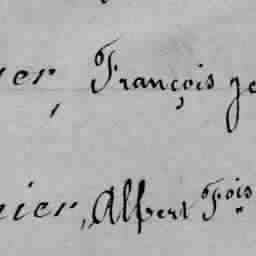 er, François
nier, Albert Fois